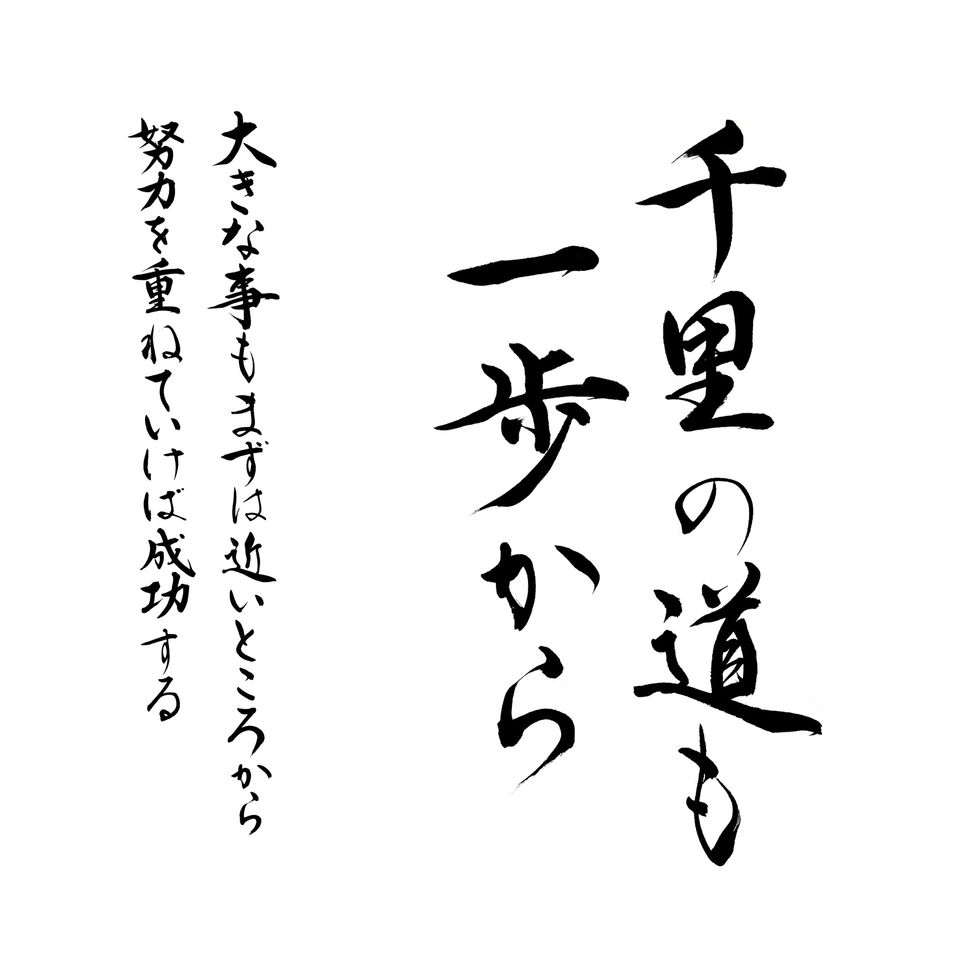 千里の道も
一歩から
大きな事もまずは近いところから
努力を重ねていけば成功する